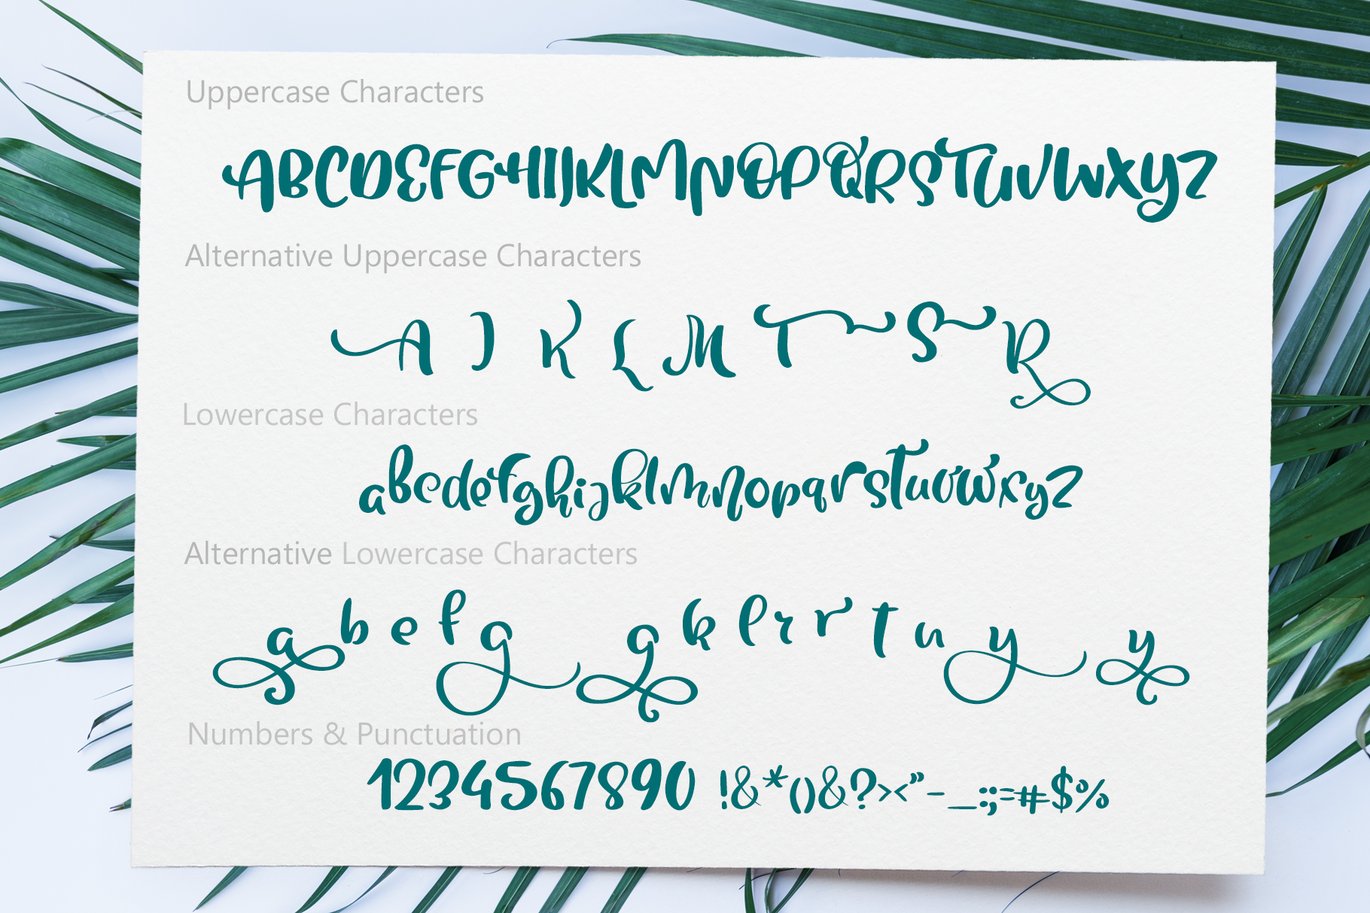 Uppercase Characters
ABCDEFGHIJKLMNOPQRSTUVWXYZ
Alternative Uppercase Characters
A J K L M T S R
Lowercase Characters
abcdefghijklmnopqrstuvwxyz
Alternative Lowercase Characters
a b e f g g k l r r t u y y
Numbers & Punctuation
1234567890 !&*()&?><"-_:;=#$%